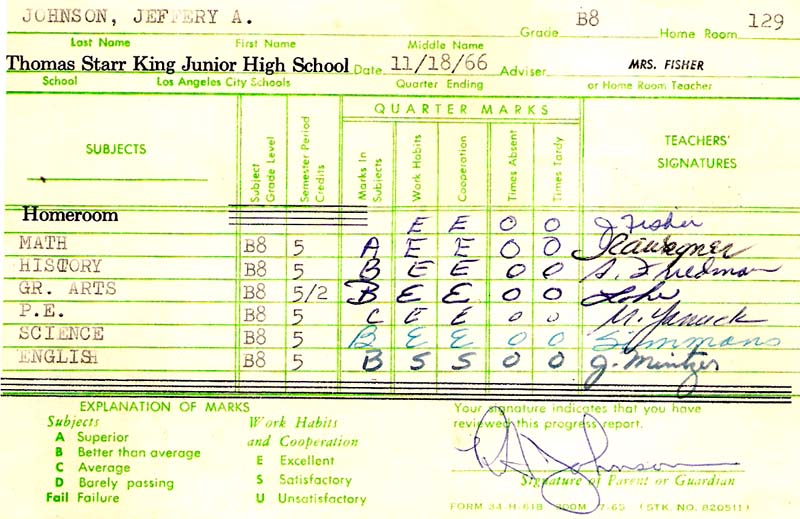 JOHNSON, JEFFERY A. B8 129
Last Name First Name Middle Name Grade Home Room
Thomas Starr King Junior High School Date 11/18/66 Adviser MRS. FISHER
School Los Angeles City Schools Quarter Ending or Home Room Teacher
QUARTER MARKS
SUBJECTS Subject Grade Level Semester Period Credits Marks In Subjects Work Habits Cooperation Times Absent Times Tardy TEACHERS' SIGNATURES
Homeroom E E 0 0 J Fisher
MATH B8 5 A E E 0 0
HISTORY B8 5 B E E 0 0 S. Friedman
GR. ARTS B8 5/2 B E E 0 0
P.E. B8 5 C E E 0 0 M. Yanuck
SCIENCE B8 5 B E E 0 0 Simmons
ENGLISH B8 5 B S S 0 0 J. Mintzer
EXPLANATION OF MARKS Your signature indicates that you have
Subjects Work Habits reviewed this progress report.
A Superior and Cooperation
B Better than average E Excellent Johnson
C Average S Satisfactory Signature of Parent or Guardian
D Barely passing U Unsatisfactory
Fail Failure FORM 34-H-61B 300M 7-65 (STK. NO. 820511)